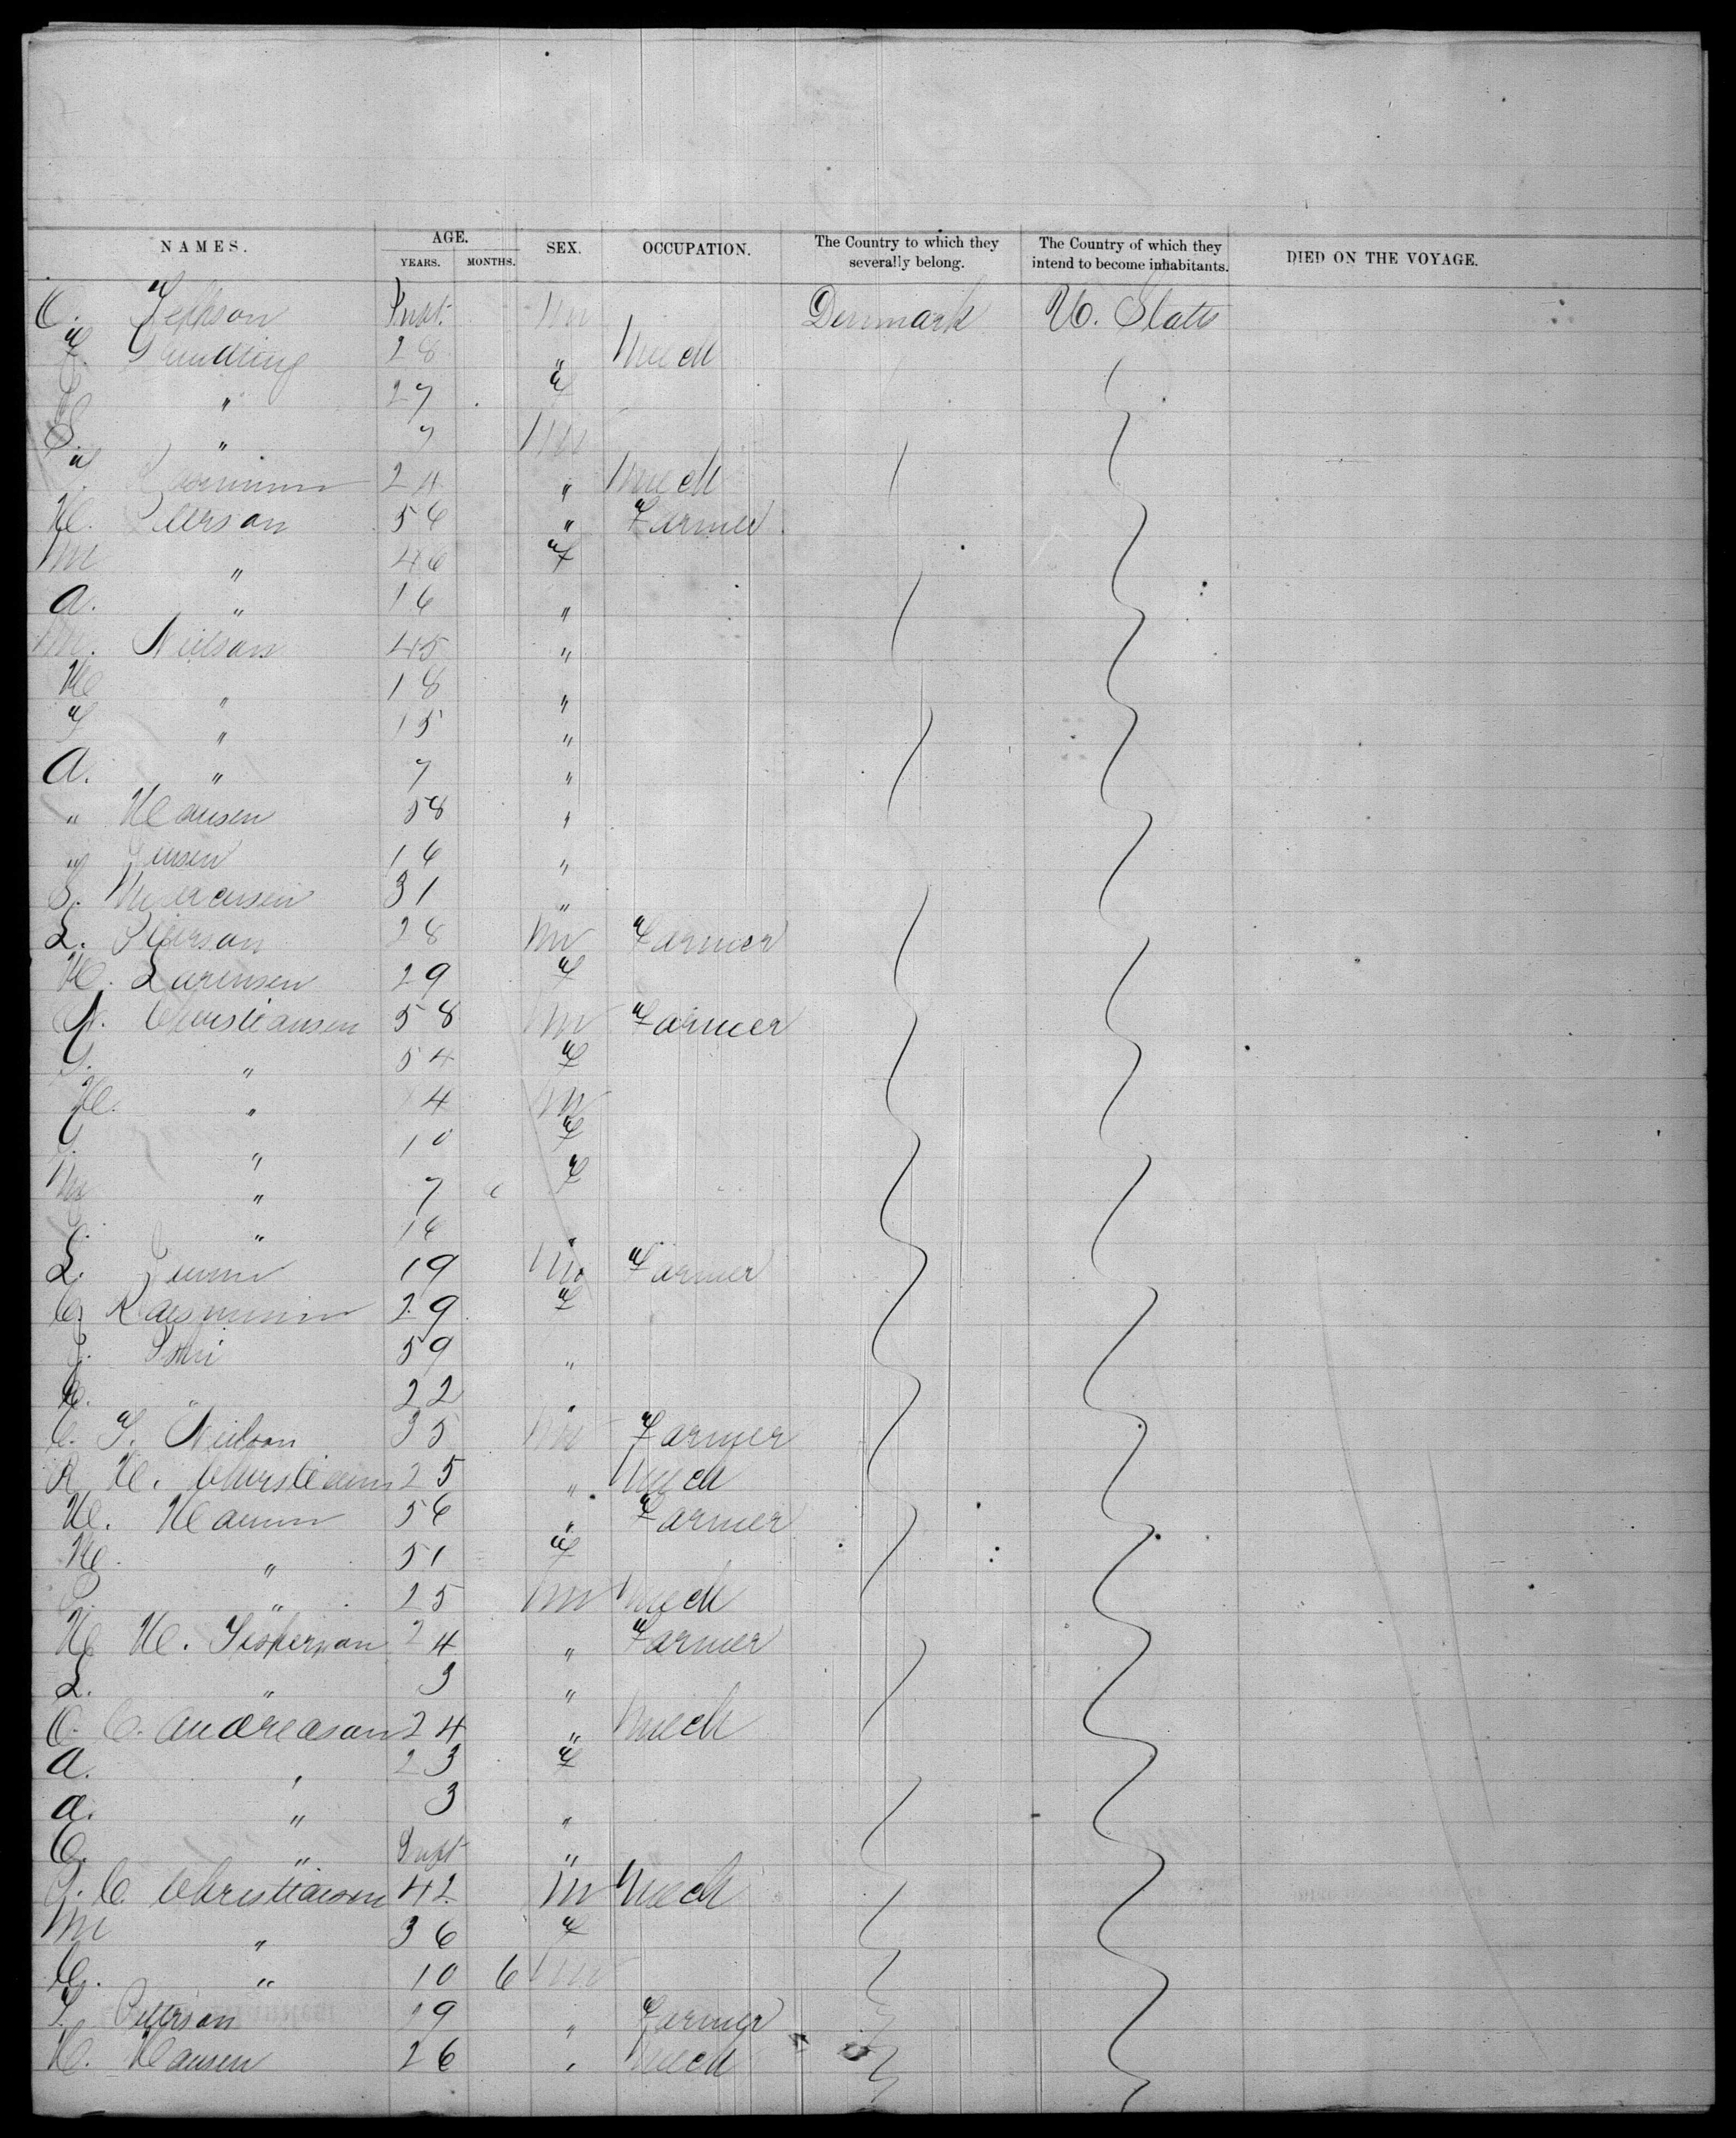 NAMES. AGE. YEARS. MONTHS. SEX. OCCUPATION. The Country to which they severally belong. The Country of which they intend to become inhabitants. DIED ON THE VOYAGE.
C. Jepson Inft. M Denmark U. States
F. 28 " Mech
" 27 F
S. " 7 M
24 " Mech
H. Peterson 56 " Farmer
M " 46 F
A. " 16 "
M. Nielson 45 "
H " 18 "
F " 15 "
A. " 7 "
" Hansen 58 "
" Jensen 16 "
S. 31 "
L. Peterson 28 M Farmer
H. Larensen 29 F
N. Christiansen 58 M Farmer
" 54 F
H. " 14 M
" 10 F
M " 7 F
" 16 "
L. Jensen 19 M Farmer
C. Rasmussen 29 F
59 "
C. " 22 "
C. F. Nielson 35 M Farmer
R. H. Christiansen 25 " Mech
H. Hansen 56 " Farmer
H. " 51 F
" 25 M Mech
H H. Jesperson 24 " Farmer
L. " 3 "
C. C. Andreason 24 " Mech
A. " 23 F
A. " 3 "
C. " Inft "
C. Christianson 42 M Mech
M " 36 F
C. " 10 6 M
Peterson 29 " Farmer
H. Hansen 26 " Mech